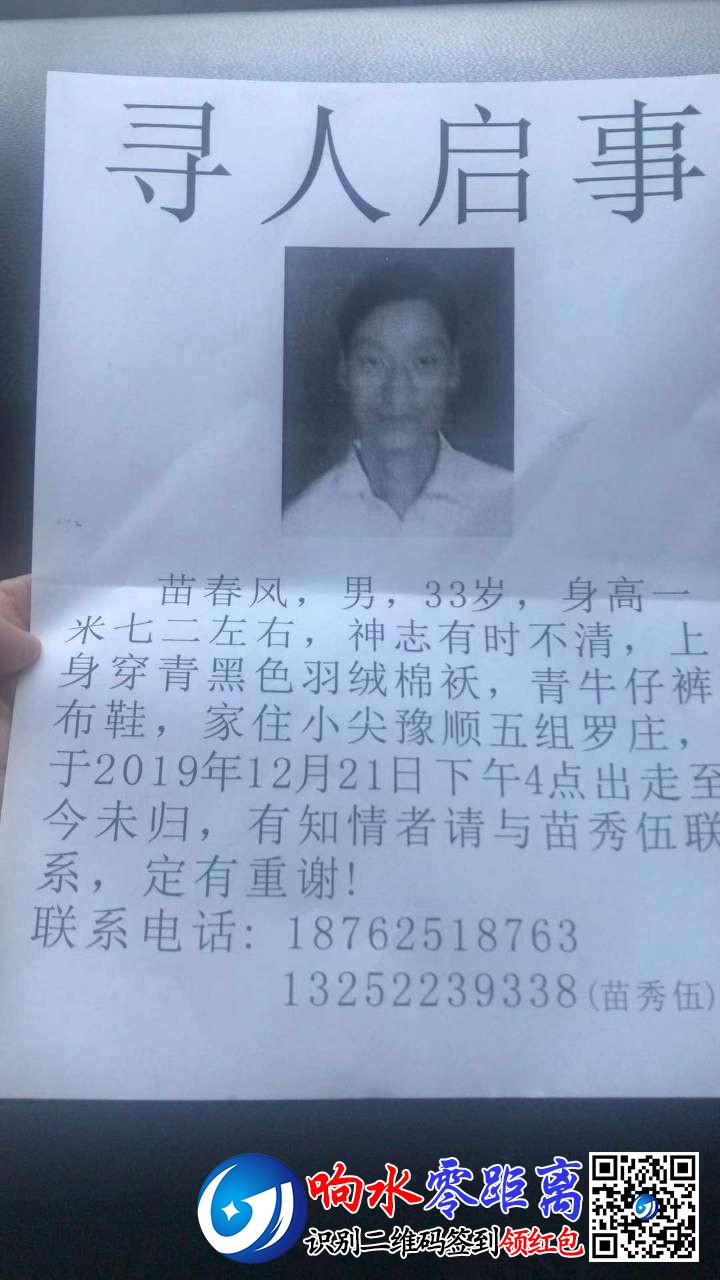 寻人启事
苗春风，男，33岁，身高一
米七二左右，神志有时不清，上
身穿青黑色羽绒棉袄，青牛仔裤
布鞋，家住小尖豫顺五组罗庄，
于2019年12月21日下午4点出走至
今未归，有知情者请与苗秀伍联
系，定有重谢!
联系电话: 18762518763
13252239338(苗秀伍)
响水零距离
识别二维码签到领红包